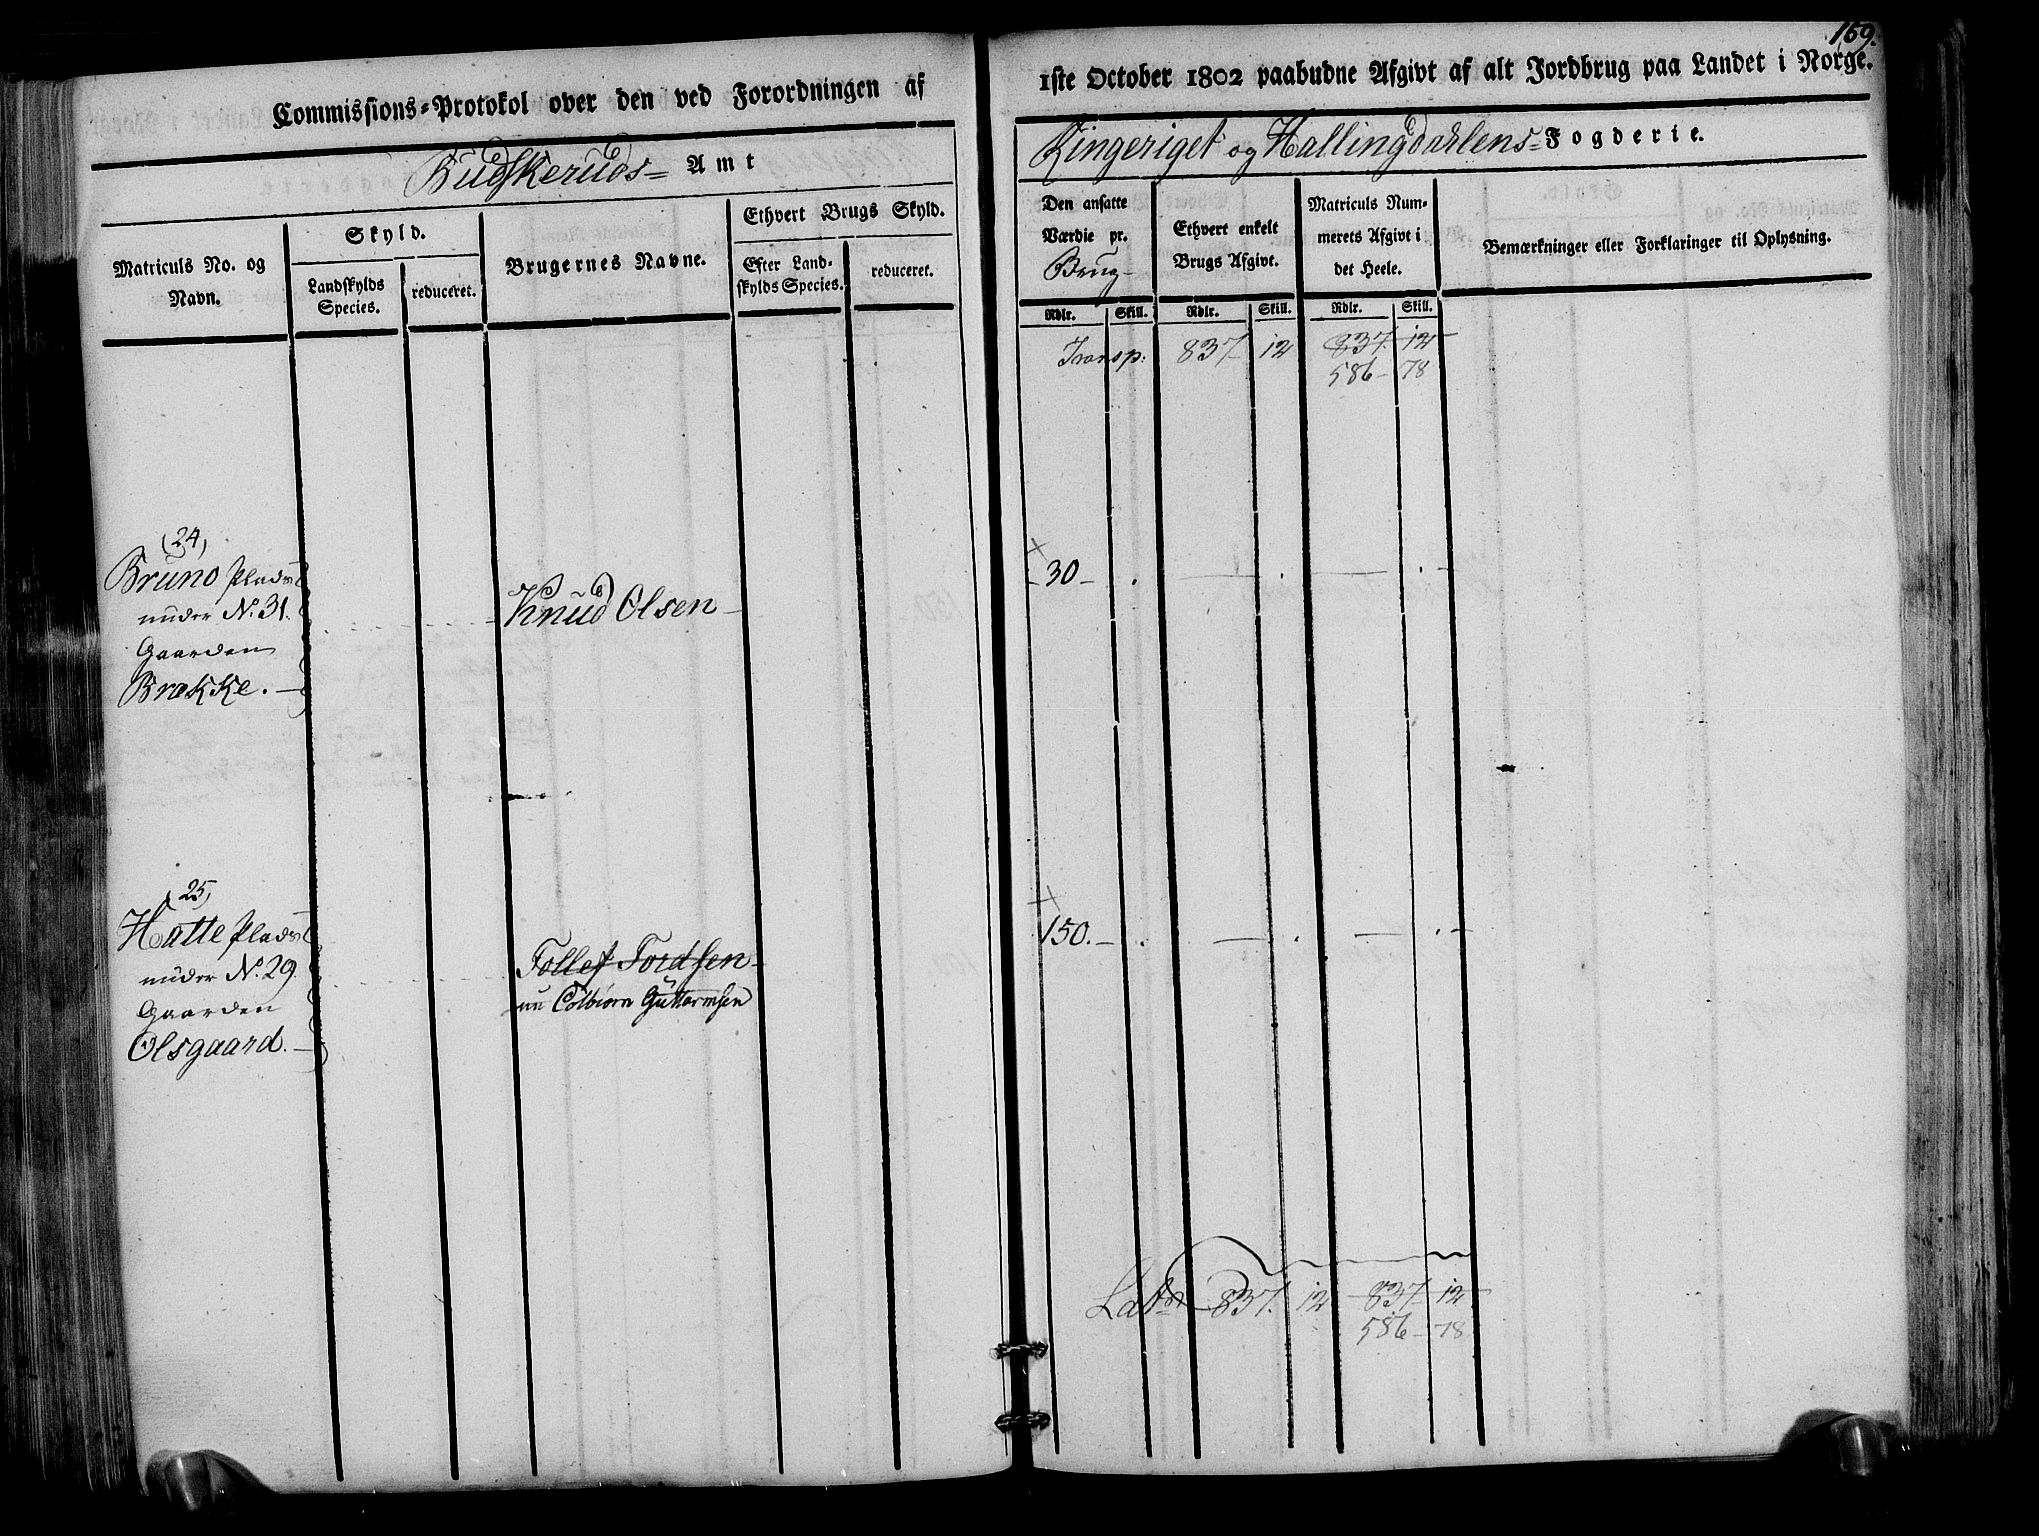 159.
Commissions-Protokol over den ved Forordningen af
1ste October 1802 paabudne Afgivt af alt Jordbrug paa Landet i Norge.
Budskeruds= Amt
Ringeriget og Hallingdahlens= Fogderie.
Matriculs No. og
Navn.
Skyld.
Landskylds
Species.
reduceret.
Brugernes Navne.
Ethvert Brugs Skyld.
Efter Land-
skylds Species.
reduceret.
Den ansatte
Værdie pr.
Brug-
Rdlr. Skill.
Ethvert enkelt
Brugs Afgivt.
Rdlr. Skill.
Matriculs Num-
merets Afgivt i
det Heele.
Rdlr. Skill.
Bemærkninger eller Forklaringer til Oplysning.
Transp: 837 12 837. 12
586- 78
24,
Bruno Plads
under No. 31.
Gaarden
Brække. -
Knud Olsen
- 30 -
25,
Hatte Plads
under No. 29.
Gaarden
Olsgaard. -
Tollef Tordsen
nu Colbiorn Guttormsen
150. -
Latr 837. 12 837- 12
586- 78